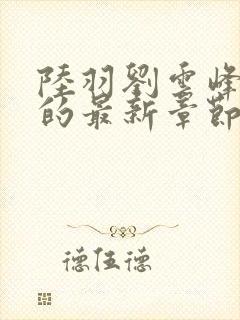 陸羽劉雪峰
的最新章節
德伍德